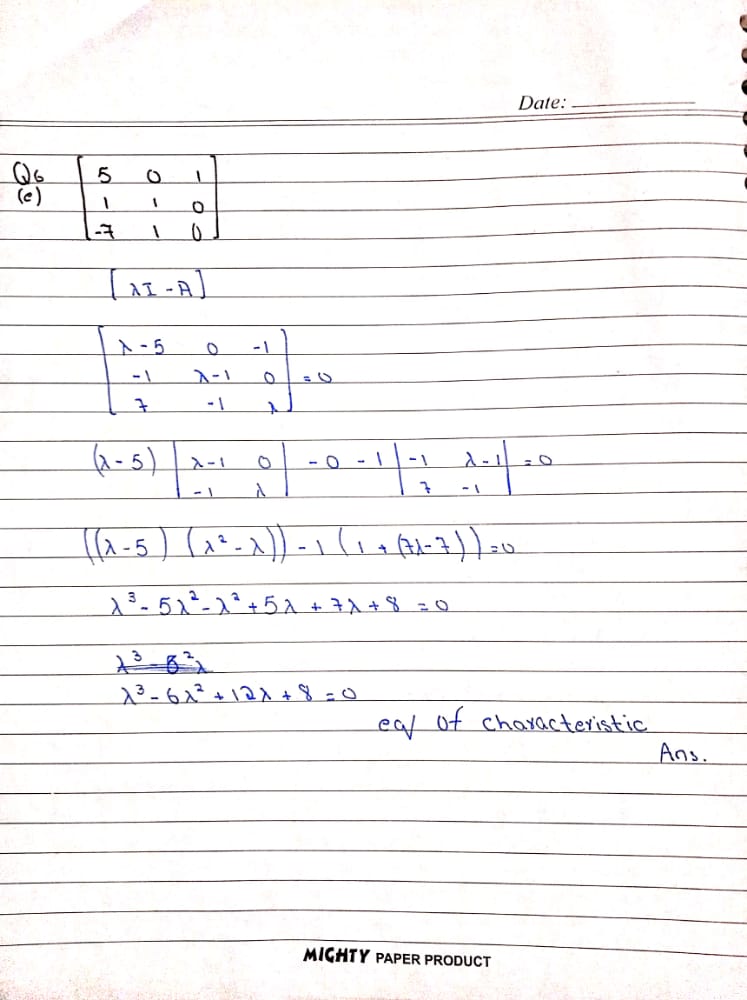 Date:
Q6
(e)
5 0 1
1 1 0
-7 1 0
[λI - A]
λ-5 0 -1
-1 λ-1 0 = 0
7 -1 λ
(λ-5) | λ-1 0 | - 0 - 1 | -1 λ-1 | = 0
-1 λ 7 -1
((λ-5) (λ² - λ)) - 1 (1 + (7λ-7)) = 0
λ³ - 5λ² - λ² + 5λ + 7λ + 8 = 0
λ³ - 6λ² + 12λ + 8 = 0
eq/ of characteristic
Ans.
MIGHTY PAPER PRODUCT